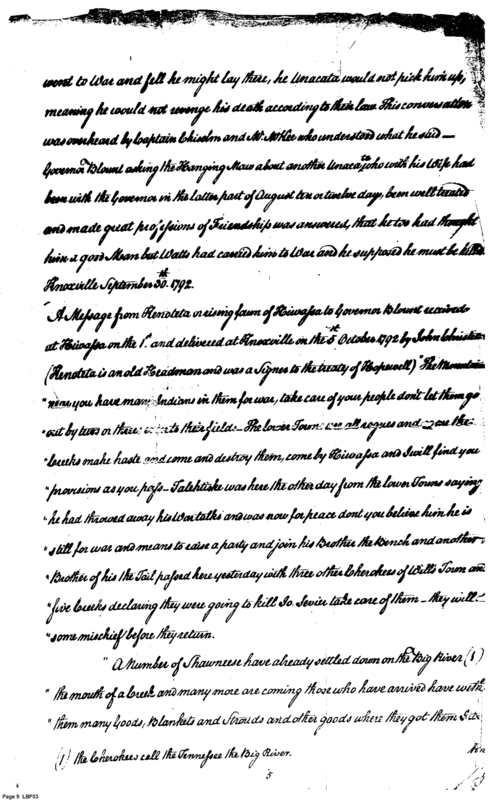 went to War and fell he might lay there, he Unacata would not pick him up,
meaning he would not revenge his death according to their law. This conversation
was overheard by Captain Chisolm and Mr. McKee who understood what he said —
Governor Blount asking the Hanging Maw about another Unacata who with his Wife had
been with the Governor in the latter part of August ten or twelve days, been well treated
and made great professions of Friendship was answered, that he too had thought
him a good Man but Watts had carried him to War and he supposed he must be killed
Knoxville September 30th. 1792.
"A Message from Kenoteta or rising fawn of Hiwassa to Governor Blount received
at Hiwassa on the 1st and delivered at Knoxville on the 5th October 1792 by John Christian
(Kenoteta is an old Headsman and was a Signer to the treaty of Hopewell) The Mountains
"near you have many Indians in them for war, take care of your people don't let them go
"out by twos or threes into their fields — The lower Towns are all rogues and are the
"Creeks make haste and come and destroy them, come by Hiwassa and I will find you
"provisions as you pass — Talehtiske was here the other day from the lower Towns saying
"he had throwed away his War talks and was now for peace dont you believe him he is
"still for war and means to raise a party and join his Brother the Bench and another
"Brother of his the Tail passed here yesterday with three other Cherokees of Wills Town and
"five Creeks declaring they were going to kill Jo. Sevier take care of them — they will
"some mischief before they return.
"A Number of Shawneese have already settled down on the Big River (1)
"the mouth of a Creek and many more are coming those who have arrived have with
"them many Goods, Blankets and Strouds and other goods where they got them I do
(1) the Cherokees call the Tennessee the Big River.
5
Page 5 LBF03